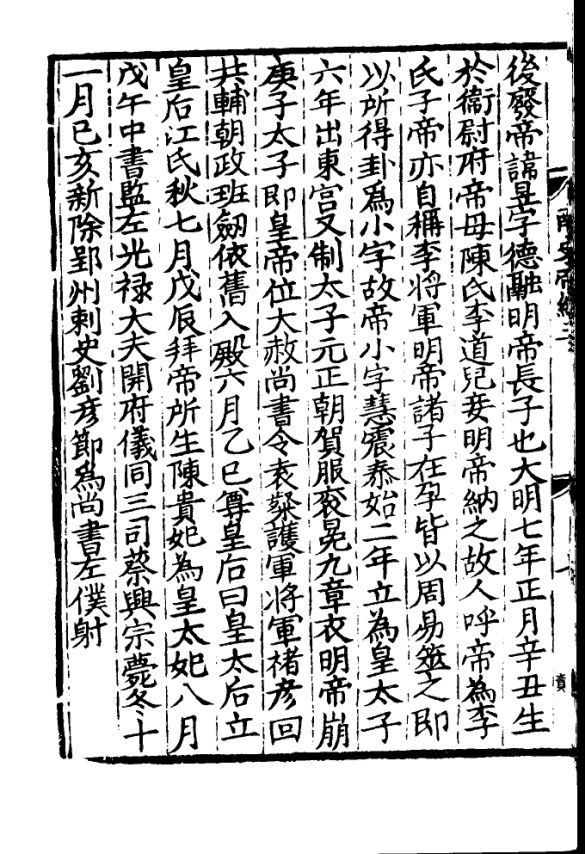 後廢帝諱昱字德融明帝長子也大明七年正月辛丑生
於衞尉府帝母陳氏李道兒妾明帝納之故人呼帝為李
氏子帝亦自稱李將軍明帝諸子在孕皆以周易筮之即
以所得卦為小字故帝小字慧震泰始二年立為皇太子
六年出東宮又制太子元正朝賀服衮冕九章衣明帝崩
庚子太子即皇帝位大赦尚書令袁粲護軍將軍褚彥回
共輔朝政班劒依舊入殿六月乙巳尊皇后曰皇太后立
皇后江氏秋七月戊辰拜帝所生陳貴妃為皇太妃八月
戊午中書監左光祿大夫開府儀同三司蔡興宗薨冬十
一月己亥新除郢州刺史劉彥節為尚書左僕射